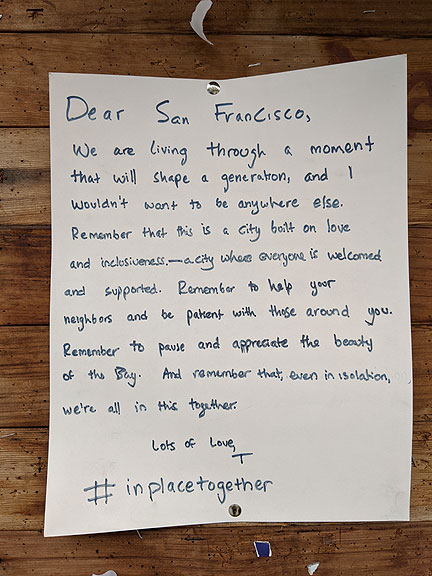 Dear San Francisco,
We are living through a moment
that will shape a generation, and I
wouldn't want to be anywhere else.
Remember that this is a city built on love
and inclusiveness.—a city where everyone is welcomed
and supported. Remember to help your
neighbors and be patient with those around you.
Remember to pause and appreciate the beauty
of the Bay. And remember that, even in isolation,
we're all in this together.
Lots of Love,
T
#inplacetogether